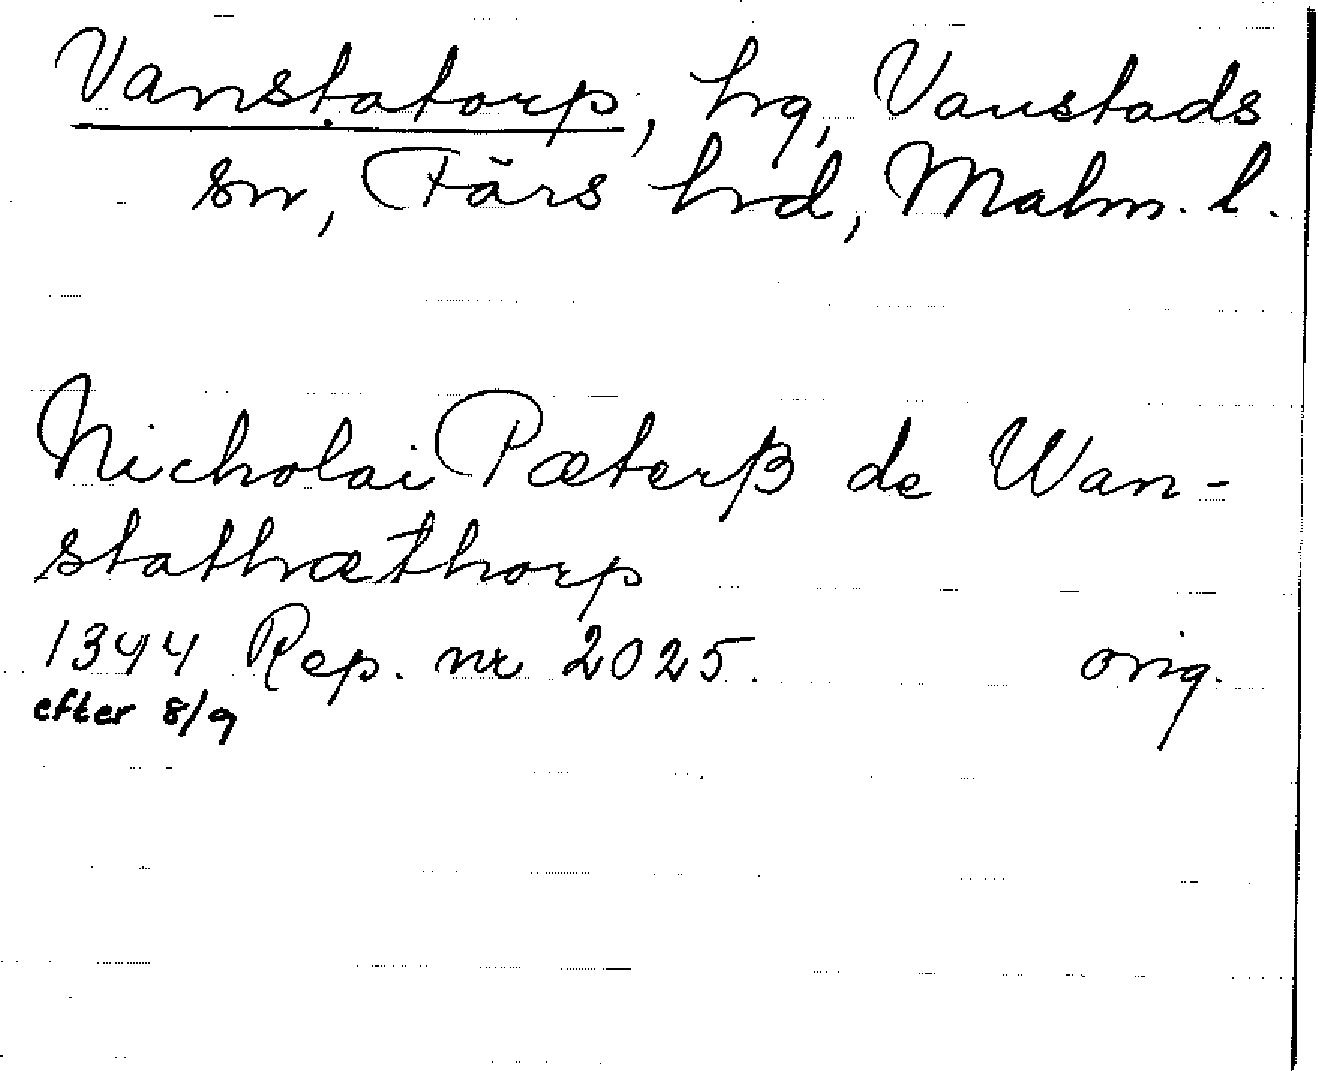 Vanstatorp, hg, Vanstads
sn, Färs hrd, Malm. l.
Nicholai Pæterß de Wan-
stathæthorp
1344 Rep. nr 2025. orig.
efter 8/9